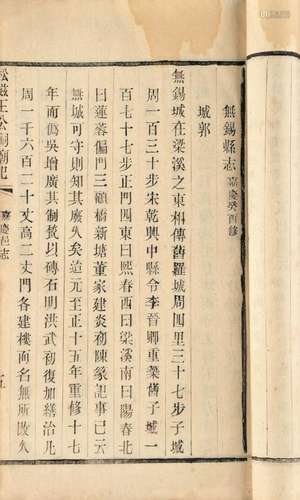 無錫縣志 嘉慶癸酉修
城郭
無錫城在梁溪之東相傳舊羅城周四里三十七步子城
周一百三十步宋乾興中縣令李晉卿重築舊子城一
百七十七步正門四東曰熙春西曰梁溪南曰陽春北
曰蓮蓉偏門三顧橋新塘董家建炎初陳彖記事已云
無城可守則知其廢久矣迨元至正十五年重修十七
年而僞吳增廣其制甃以磚石明洪武初復加繕治凡
周一千六百二十丈高二丈門各建樓而名無所改久
嘉慶邑志